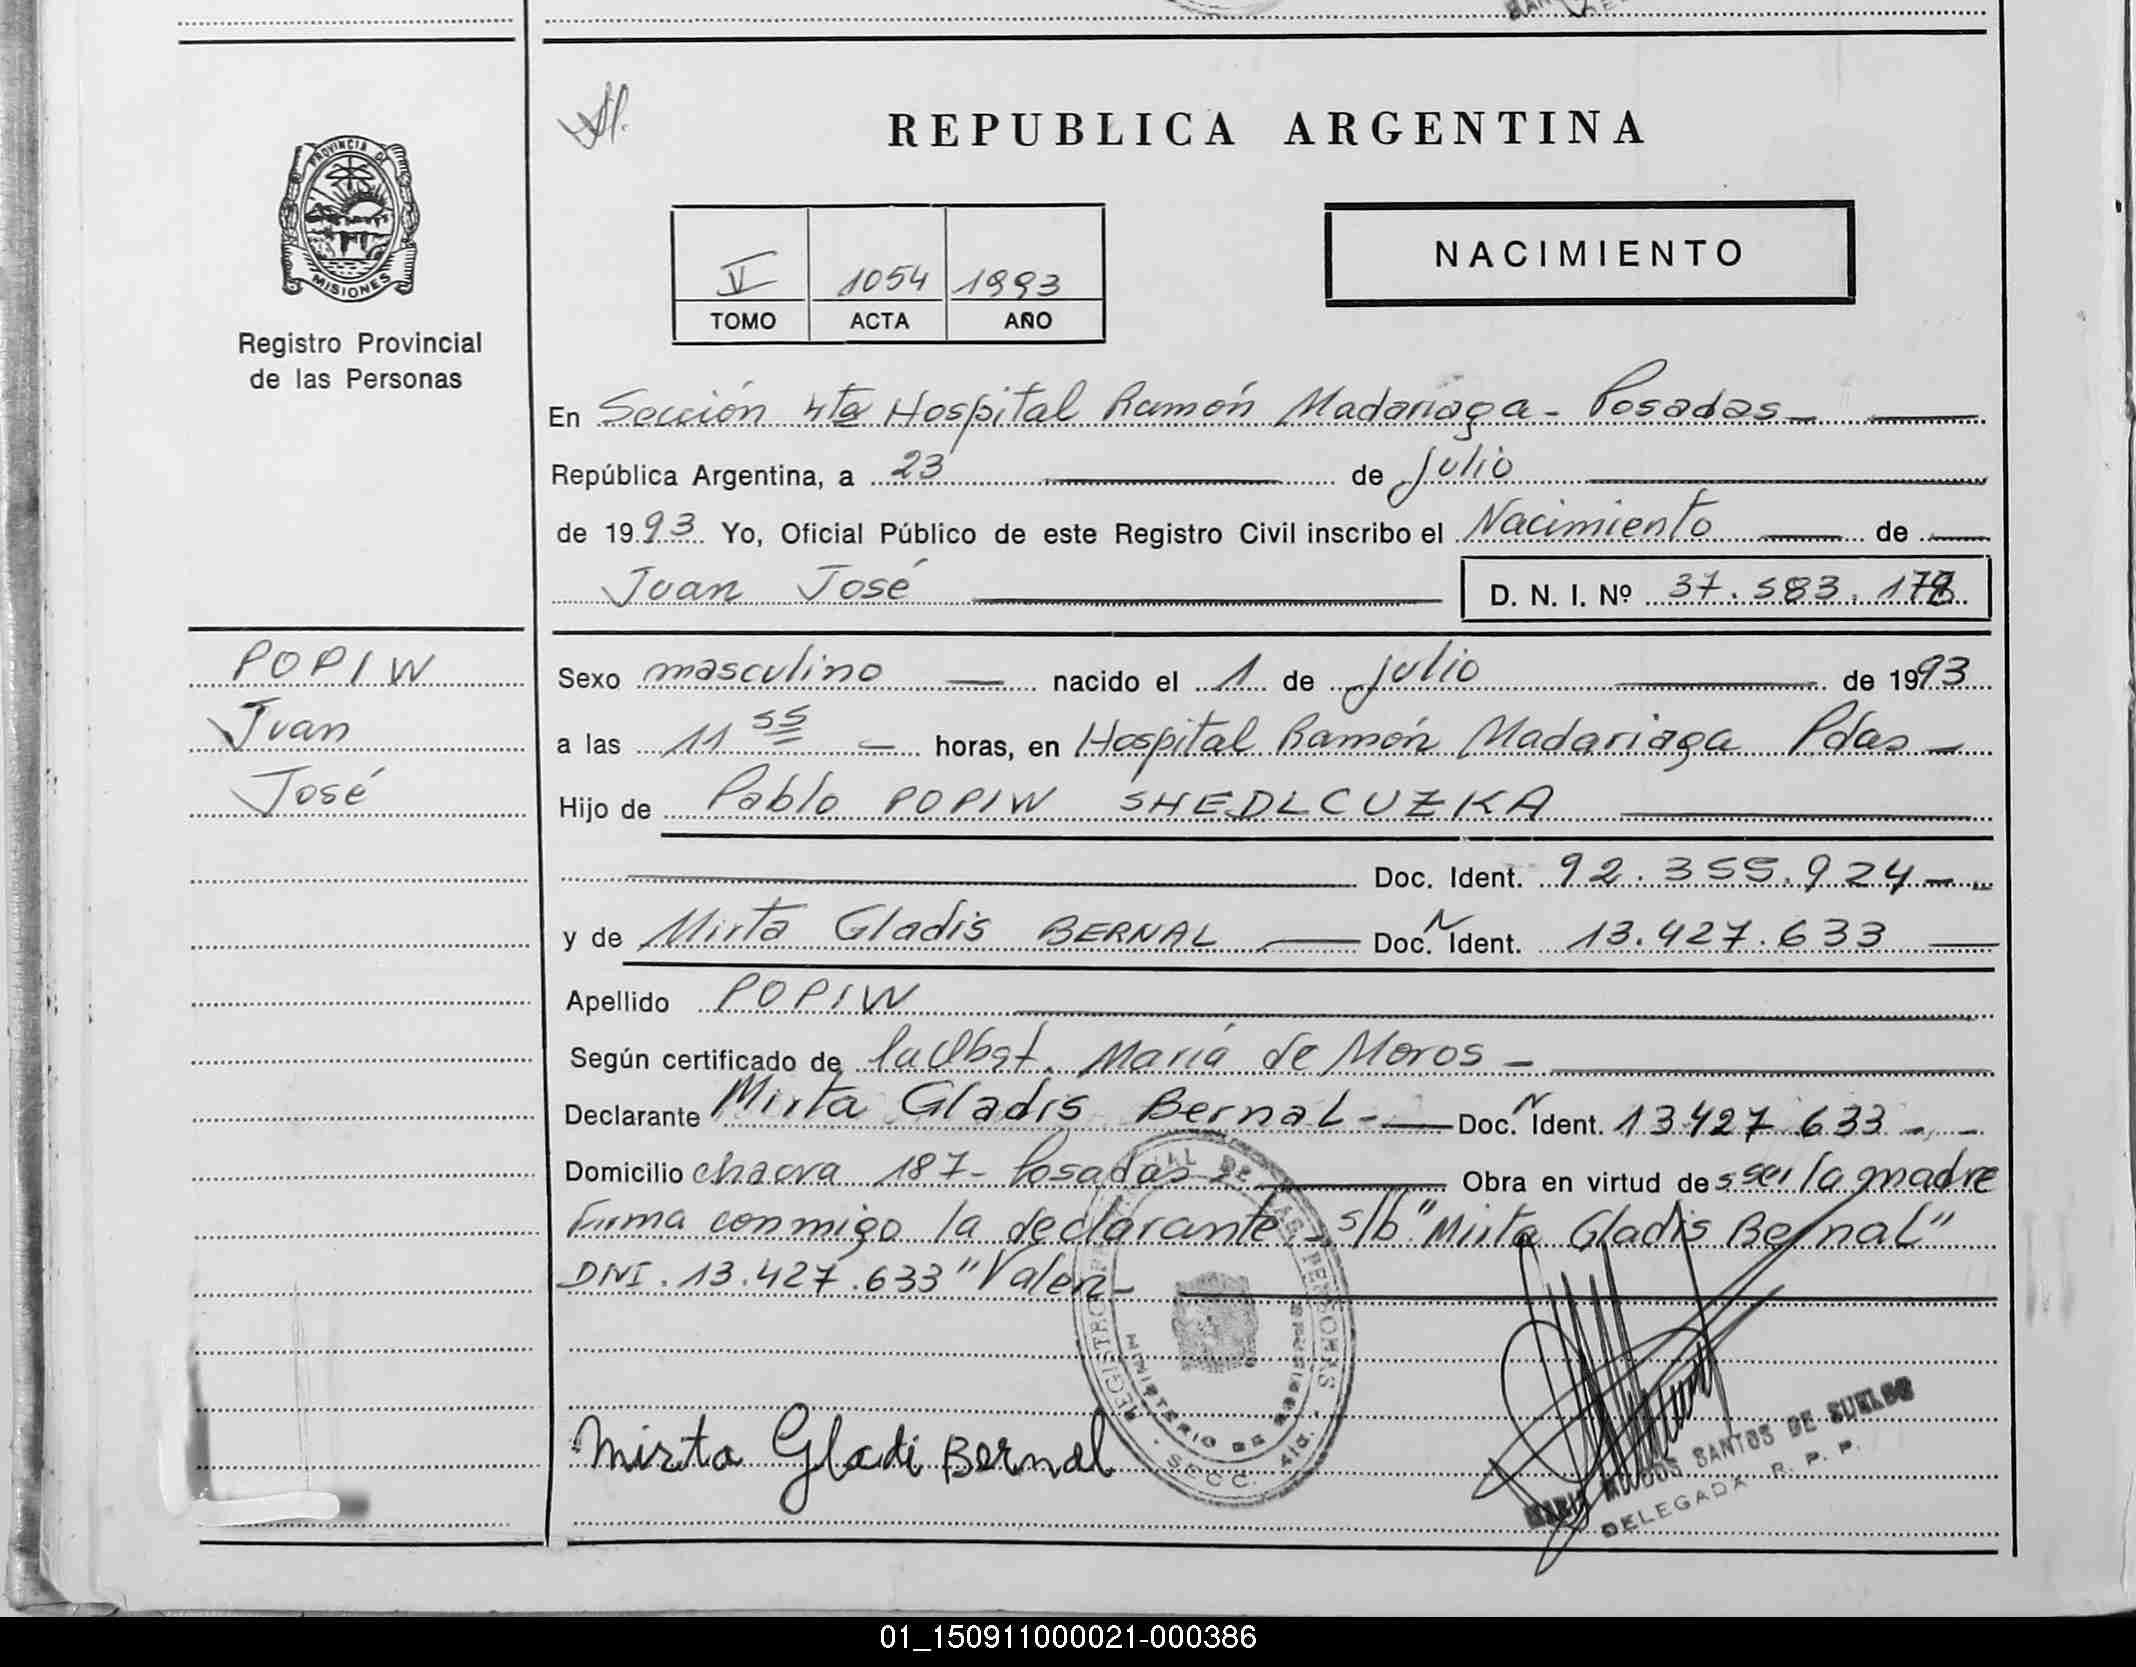 REPUBLICA ARGENTINA
PROVINCIA DE
MISIONES
Registro Provincial
de las Personas
V 1054 1993
TOMO ACTA AÑO
NACIMIENTO
En Sección 4ta Hospital Ramón Madariaga - Posadas
República Argentina, a 23 de julio
de 1993 Yo, Oficial Público de este Registro Civil inscribo el Nacimiento de
Juan José D. N. I. Nº 37.583.178
POPIW
Juan
José
Sexo masculino nacido el 1 de julio de 1993
a las 11 55 horas, en Hospital Ramón Madariaga Pdas
Hijo de Pablo POPIW SHEDLCUZKA
Doc. Ident. 92.355.924
y de Mirta Gladis BERNAL Doc. N Ident. 13.427.633
Apellido POPIW
Según certificado de la Obst. María de Moros
Declarante Mirta Gladis Bernal Doc. N Ident. 13.427.633
Domicilio chacra 187 - Posadas Obra en virtud de ser la madre
Firma conmigo la declarante. s/b "Mirta Gladis Bernal"
DNI. 13.427.633" Valen
Mirta Gladi Bernal
MINISTERIO DE
SECC. 4ta.
SANTOS DE SUELDO
DELEGADA R. P. P.
01_150911000021-000386